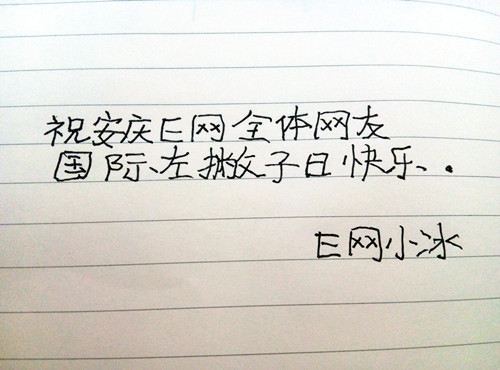 祝安庆E网全体网友
国际、左撇子日快乐、.
E网小冰